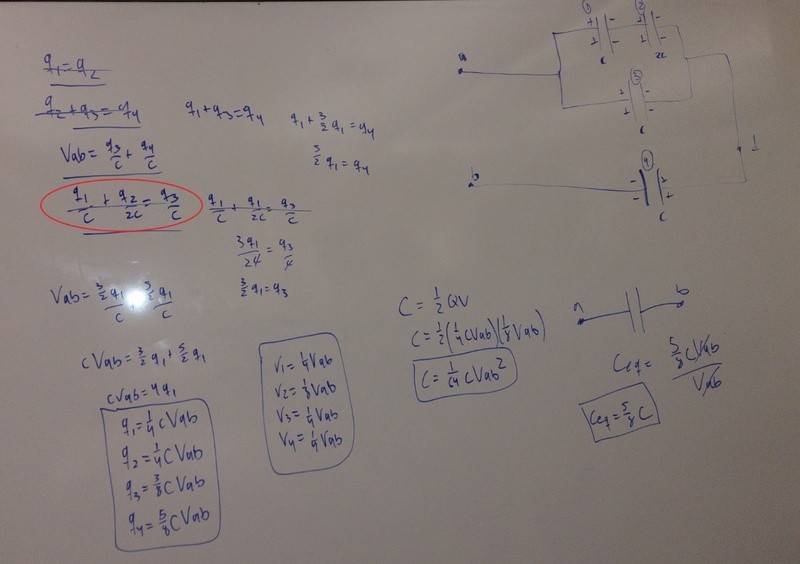 q₁=q₂
q₂+q₃=q₄
q₁+q₃=q₄
q₁+3/2 q₁=q₄
5/2 q₁=q₄
Vab= q₃/C + q₄/C
q₁/C + q₂/2C = q₃/C
q₁/C + q₁/2C = q₃/C
3q₁/2C = q₃/C
3/2 q₁=q₃
Vab= 3/2 q₁/C + 5/2 q₁/C
CVab=3/2 q₁+5/2 q₁
CVab=4q₁
q₁=1/4 CVab
q₂=1/4 CVab
q₃=3/8 CVab
q₄=5/8 CVab
V₁=1/4 Vab
V₂=1/8 Vab
V₃=1/4 Vab
V₄=1/4 Vab
C=1/2 QV
C=1/2(1/4 CVab)(1/8 Vab)
C=1/64 CVab²
a
b
C
2C
C
C
1
a
b
Ceq= 5/8 CVab / Vab
Ceq=5/8 C